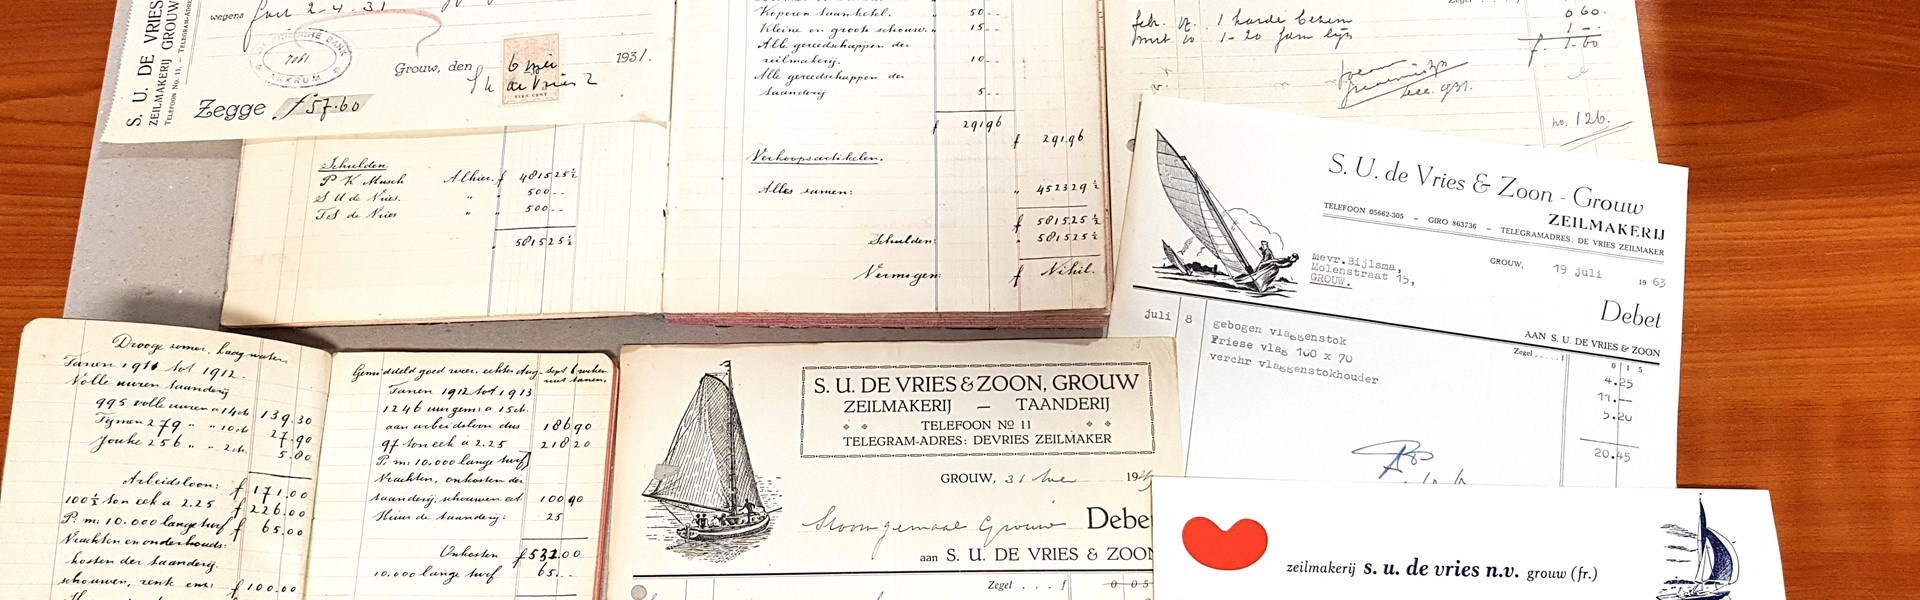 S. U. DE VRIES
ZEILMAKERIJ GROUW
TELEFOON No. 11 — TELEGRAM-ADRE
wegens
2-4-31
BANK
AKKRUM
7061
Grouw, den 6 mei 1931.
de Vries
VIEN CENT
Zegge f 57.60
Schulden.
P K Musch Alhier. f 481525½
S U de Vries. " " 500--
T S de Vries " " 500--
" 581525½
Koperen taanketel. " 50--
Kleine en groote schouw. " 15--
Alle gereedschappen der
zeilmakerij. " 10--
Alle gereedschappen der
taanderij " 5--
f 29196
f 29196
Verkoopsartikelen.
Alles samen: " 452329½
f 581525½
Schulden: " 581525½
Vermogen: f Nihil.
Zegel
0 60.
febr. 1 harde bezem
1 - 20 fam lijn 1 --
f. 1-60
no. 126.
S. U. de Vries & Zoon - Grouw
ZEILMAKERIJ
TELEFOON 05662-305 – GIRO 863736 – TELEGRAMADRES: DE VRIES ZEILMAKER
GROUW, 19 juli 1963
Mevr.Bijlsma,
Molenstraat 15,
GROUW.
Debet
AAN S. U. DE VRIES & ZOON
Zegel . . . . f 0 15
juli 8 gebogen vlaggenstok 4.25
Friese vlag 100 x 70 11.—
verchr vlaggenstokhouder 5.20
20.45
Drooge zomer, laag water.
Tanen 1911 tot 1912.
Volle uren taanderij
995 volle uren a 14ct 139.30
Tymen 279 " " 10ct 27.90
Jouke 256 " " 2ct. 5.80
Arbeidsloon: f 171.00
100½ ton eek a 2.25 f 226.00
P. m: 10.000 lange turf f 65.00
Vrachten en onderhouds:
kosten der taanderij.
schouwen, renk enz: f 100.00
Gemiddeld goed weer, echter Aug-sept 6 weken
niet tanen.
Tanen 1912 tot 1913
1246 uur gem: a 15ct.
aan arbeidsloon dus 18690
97 ton eek a 2.25 21820
P. m: 10.000 lange turf
Vrachten, onkosten der
taanderij, schouwen ect. 10090
Huur de taanderij: 25
Onkosten f 532.00
10.000 lange turf 65--
S. U. DE VRIES & ZOON, GROUW
ZEILMAKERIJ — TAANDERIJ
TELEFOON No 11
TELEGRAM-ADRES: DEVRIES ZEILMAKER
GROUW, 31 19
Stoomgemaal Grouw Debet
aan S. U. DE VRIES & ZOON
Zegel . . . . f 0 05
zeilmakerij s. u. de vries n.v. grouw (fr.)